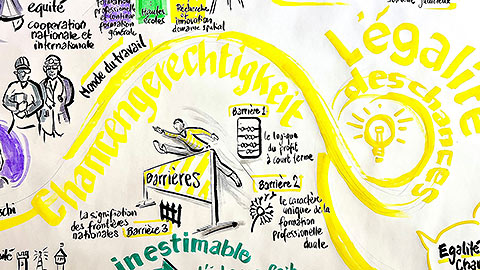 équité
coopération
nationale et
internationale
professionnelle
et continue
formation
générale
Hautes
écoles
Recherche et
innovation
domaine spatial
Monde du travail
Chancengerechtigkeit
L'égalité
des chances
Barrière 1
la logique
du profit
à court terme
Barrières
Barrière 2
le caractère
unique de la
formation
professionnelle
duale
La signification
des frontières
nationales
Barrière 3
inestimable
Egalité